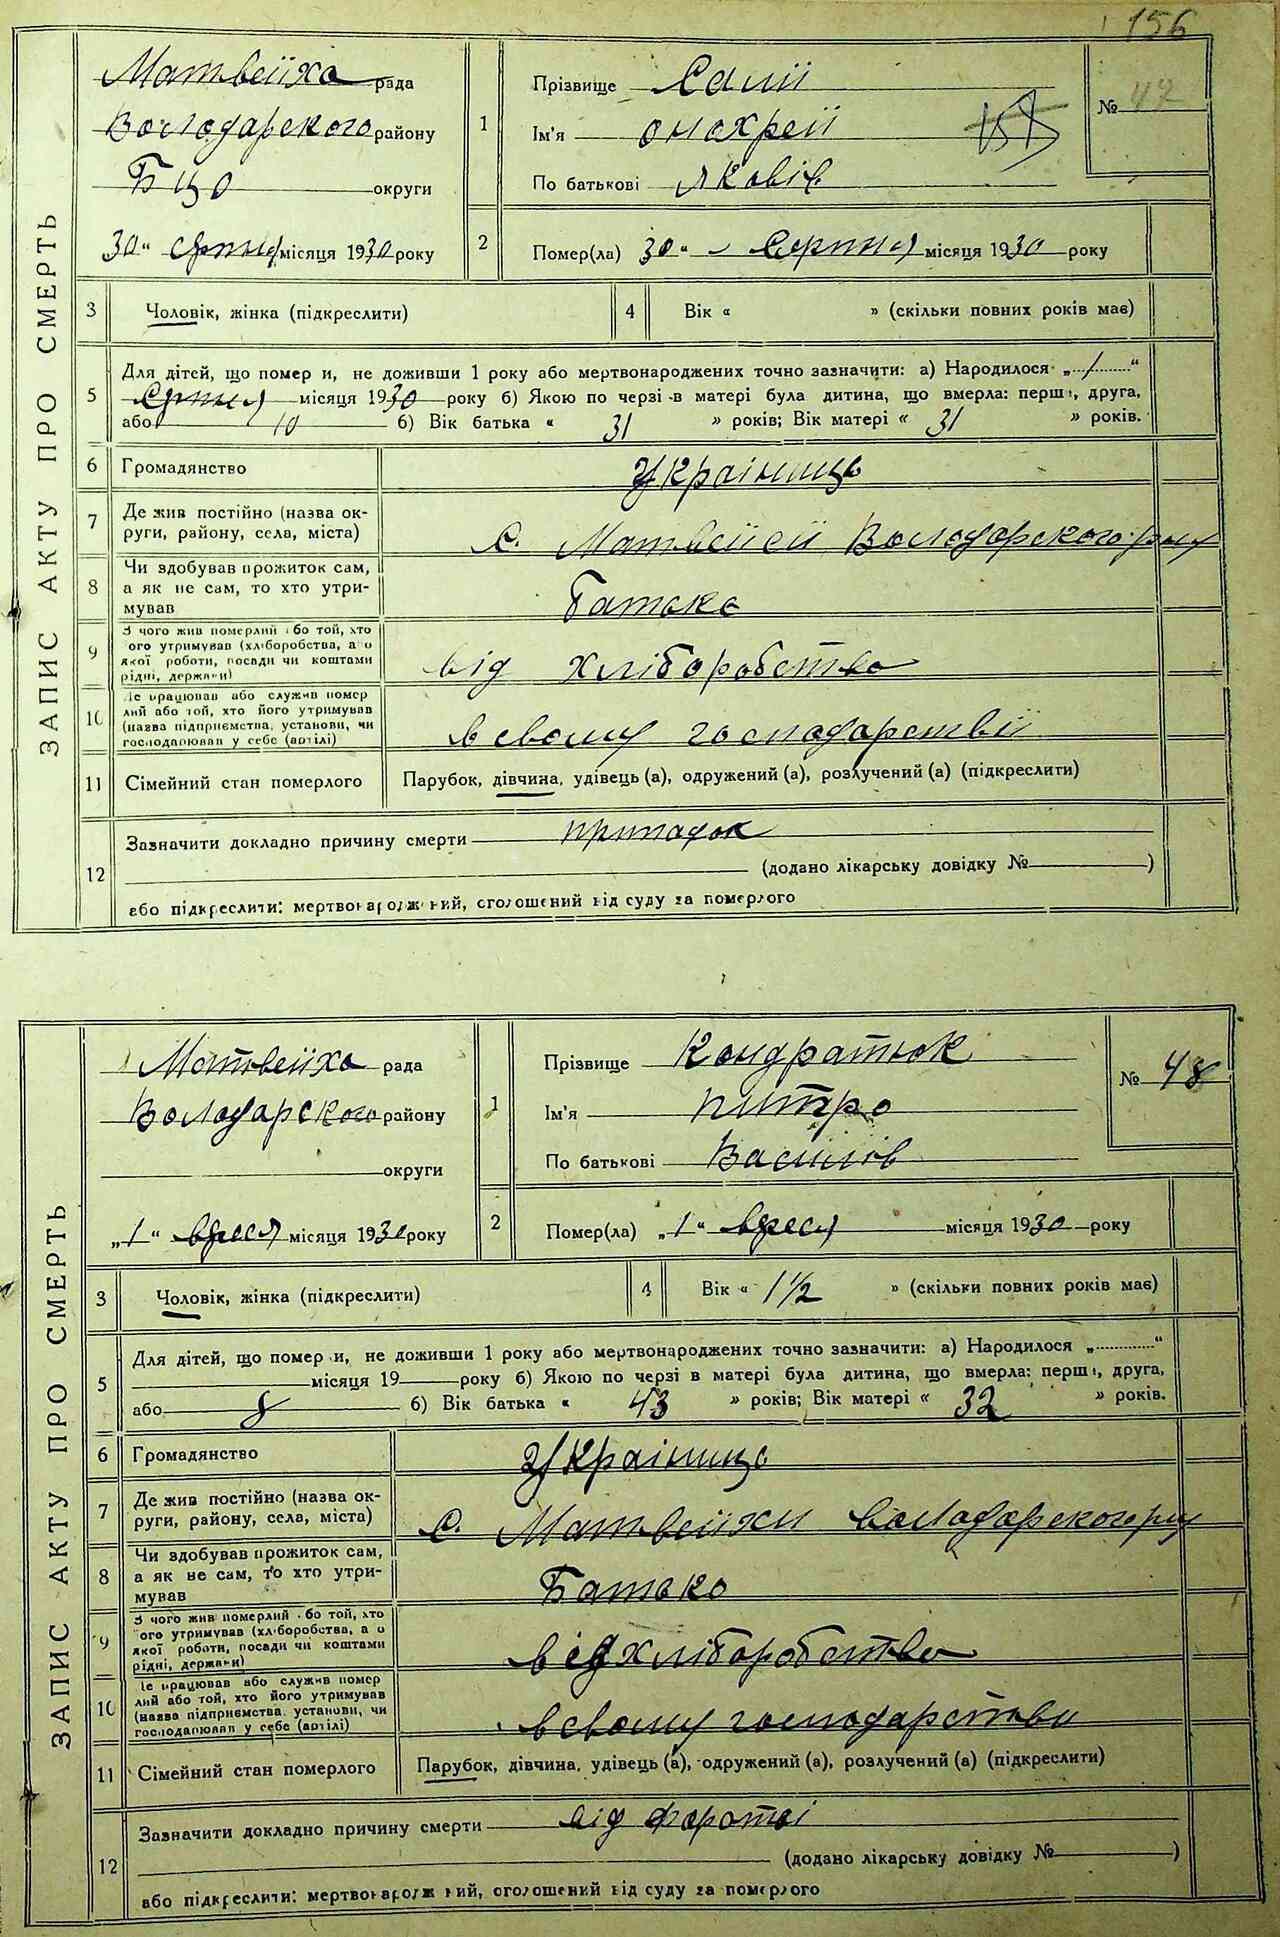 156
ЗАПИС АКТУ ПРО СМЕРТЬ
Матвейха рада
Володарского району
БЦО округи
30 " серпня місяця 1930 року
1
Прізвище Салій
Ім'я Онохрей
По батькові Яковів
№ 47
2
Помер(ла) 30 " Серпня місяця 1930 року
3 Чоловік, жінка (підкреслити)
4 Вік « » (скільки повних років має)
5 Для дітей, що помер и, не доживши 1 року або мертвонароджених точно зазначити: а) Народилося „ 1 “
Серпня місяця 1930 року б) Якою по черзі в матері була дитина, що вмерла: перш , друга,
або 10 б) Вік батька « 31 » років; Вік матері « 31 » років.
6 Громадянство Українць
7 Де жив постійно (назва ок-
руги, району, села, міста) с. Матвейсй Володарского р-ну
8 Чи здобував прожиток сам,
а як не сам, то хто утри-
мував Батькс
9 З чого жив померлий або той, хто
ого утримував (хліборобства, а о
якої роботи, посади чи коштами
рідні, держави) від хліборобство
10 Де працював або служив помер
лий або той, хто його утримував
(назва підприємства, установи, чи
господарював у себе (артілі) в свому господарствії
11 Сімейний стан померлого Парубок, дівчина, удівець (а), одружений (а), розлучений (а) (підкреслити)
12 Зазначити докладно причину смерти припадок
(додано лікарську довідку № )
або підкреслити: мертвонароджений, оголошений від суду за померлого
ЗАПИС АКТУ ПРО СМЕРТЬ
Матвейха рада
Володарского району
округи
„ 1 “ вресня місяця 1930 року
1
Прізвище Кондратюк
Ім'я Питро
По батькові Василів
№ 48
2
Помер(ла) „ 1 “ вресня місяця 1930 року
3 Чоловік, жінка (підкреслити)
4 Вік « 1½ » (скільки повних років має)
5 Для дітей, що помер и, не доживши 1 року або мертвонароджених точно зазначити: а) Народилося „ “
місяця 19 року б) Якою по черзі в матері була дитина, що вмерла: перш , друга,
або 8 б) Вік батька « 43 » років; Вік матері « 32 » років.
6 Громадянство Українць
7 Де жив постійно (назва ок-
руги, району, села, міста) с. Матвейхи Володарского р-ну
8 Чи здобував прожиток сам,
а як не сам, то хто утри-
мував Батько
9 З чого жив померлий або той, хто
ого утримував (хліборобства, а о
якої роботи, посади чи коштами
рідні, держави) від хліборобство
10 Де працював або служив помер
лий або той, хто його утримував
(назва підприємства, установи, чи
господарював у себе (артілі) в свому господарстви
11 Сімейний стан померлого Парубок, дівчина, удівець (а), одружений (а), розлучений (а) (підкреслити)
12 Зазначити докладно причину смерти від
(додано лікарську довідку № )
або підкреслити: мертвонароджений, оголошений від суду за померлого